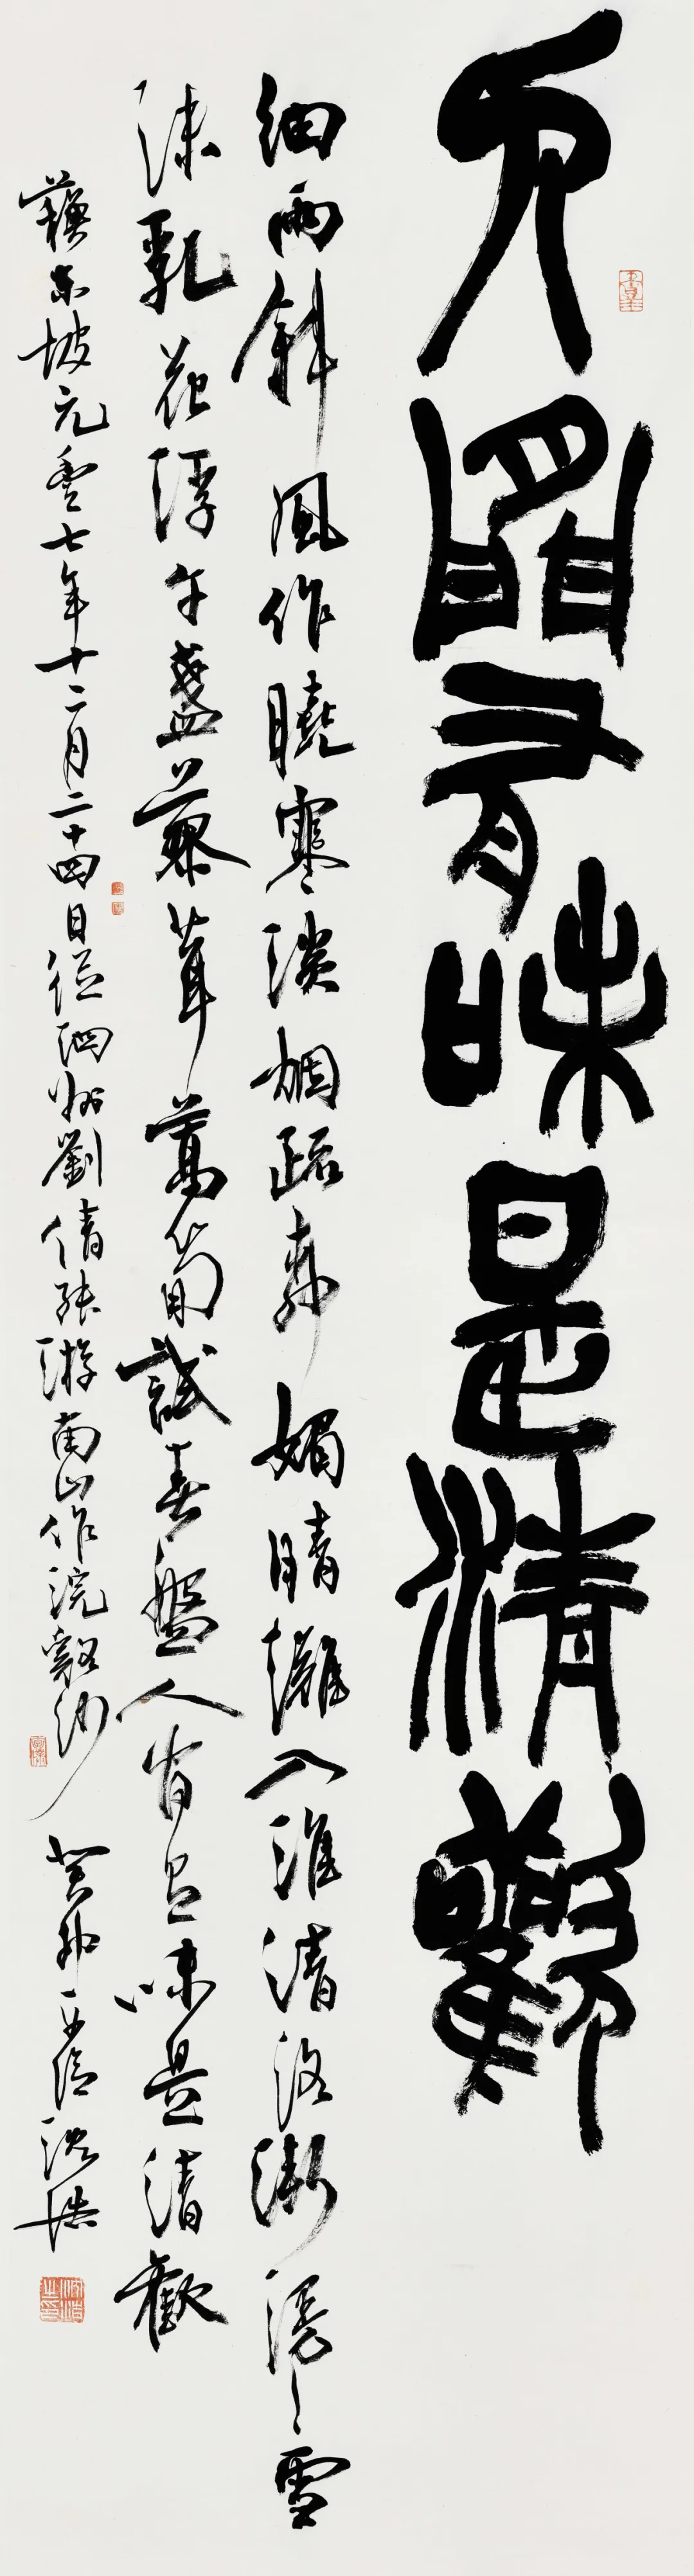 人間有味是清歡
細雨斜風作曉寒淡烟疏柳媚晴灘入淮清洛漸漫〻雪
沫乳花浮午盞蓼茸蒿筍試春盤人間有味是清歡
蘇東坡元豐七年十二月二十四日從泗州劉倩叔游南山作浣谿沙 癸卯 沈浩